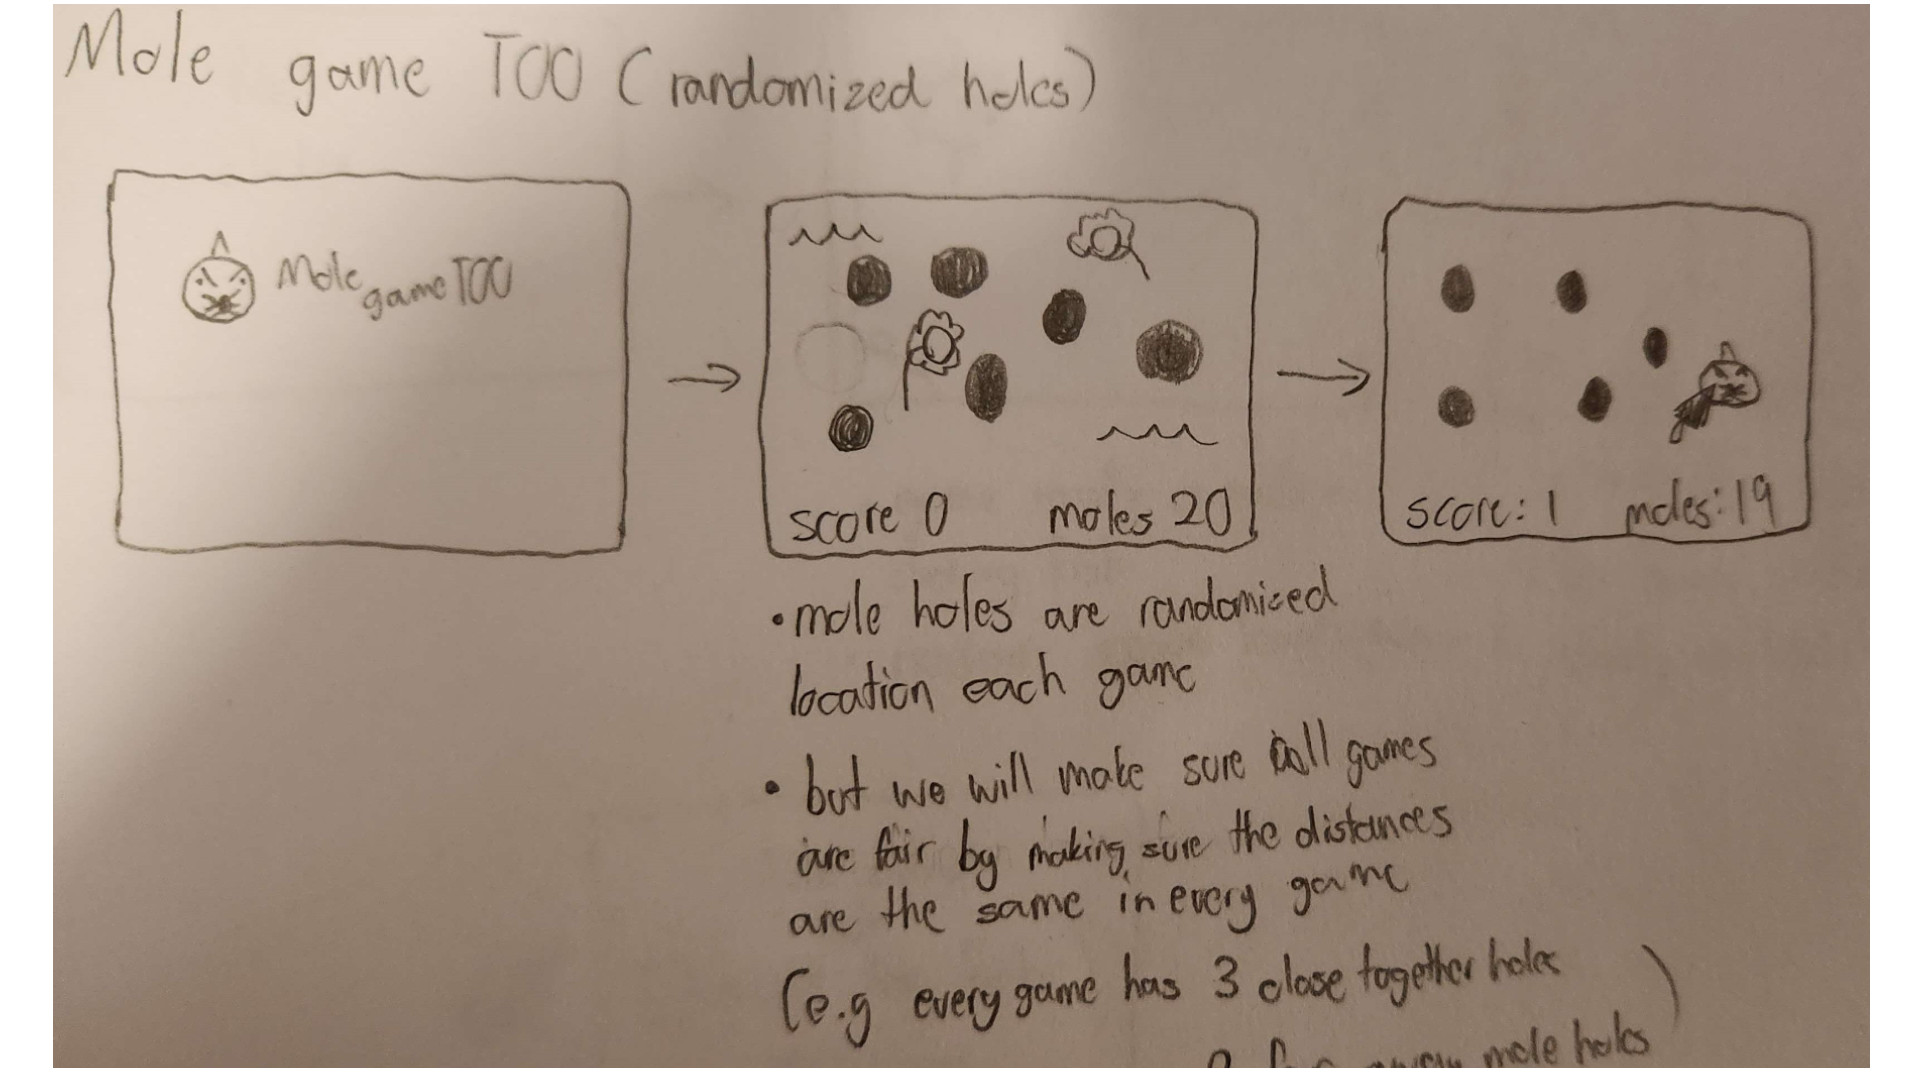 Mole game TOO (randomized holes)
Mole
game TOO
score 0 moles 20
score: 1 moles: 19
• mole holes are randomized
location each game
• but we will make sure all games
are fair by making sure the distances
are the same in every game
(e.g every game has 3 close together holes
mole holes )